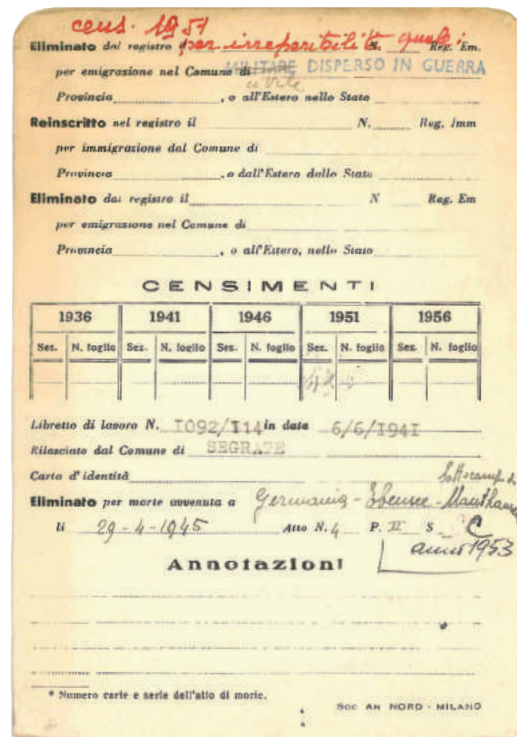 cens. 1951
Eliminato dal registro per irreperibilità quale: N. Reg. Em.
per emigrazione nel Comune di MILITARE DISPERSO IN GUERRA
civile
Provincia , o all'Estero nello Stato
Reinscritto nel registro il N. Reg. Imm
per immigrazione dal Comune di
Provincia , o dall'Estero dallo Stato
Eliminato dai registro il N Reg. Em
per emigrazione nel Comune di
Provincia , o all'Estero, nello Stato
CENSIMENTI
1936 1941 1946 1951 1956
Sez. N. foglio Sez. N. foglio Sez. N. foglio Sez. N. foglio Sez. N. foglio
Libretto di lavoro N. I092/I14 in data 6/6/I94I
Rilasciato dal Comune di SEGRATE
Carta d'identità
Sottocampo di
Eliminato per morte avvenuta a Germania - Ebensee - Mauthausen
li 29-4-1945 Atto N. 4 P. II S. C
anno 1953
Annotazioni
* Numero carte e serie dell'atto di morte.
Soc AN NORD - MILANO